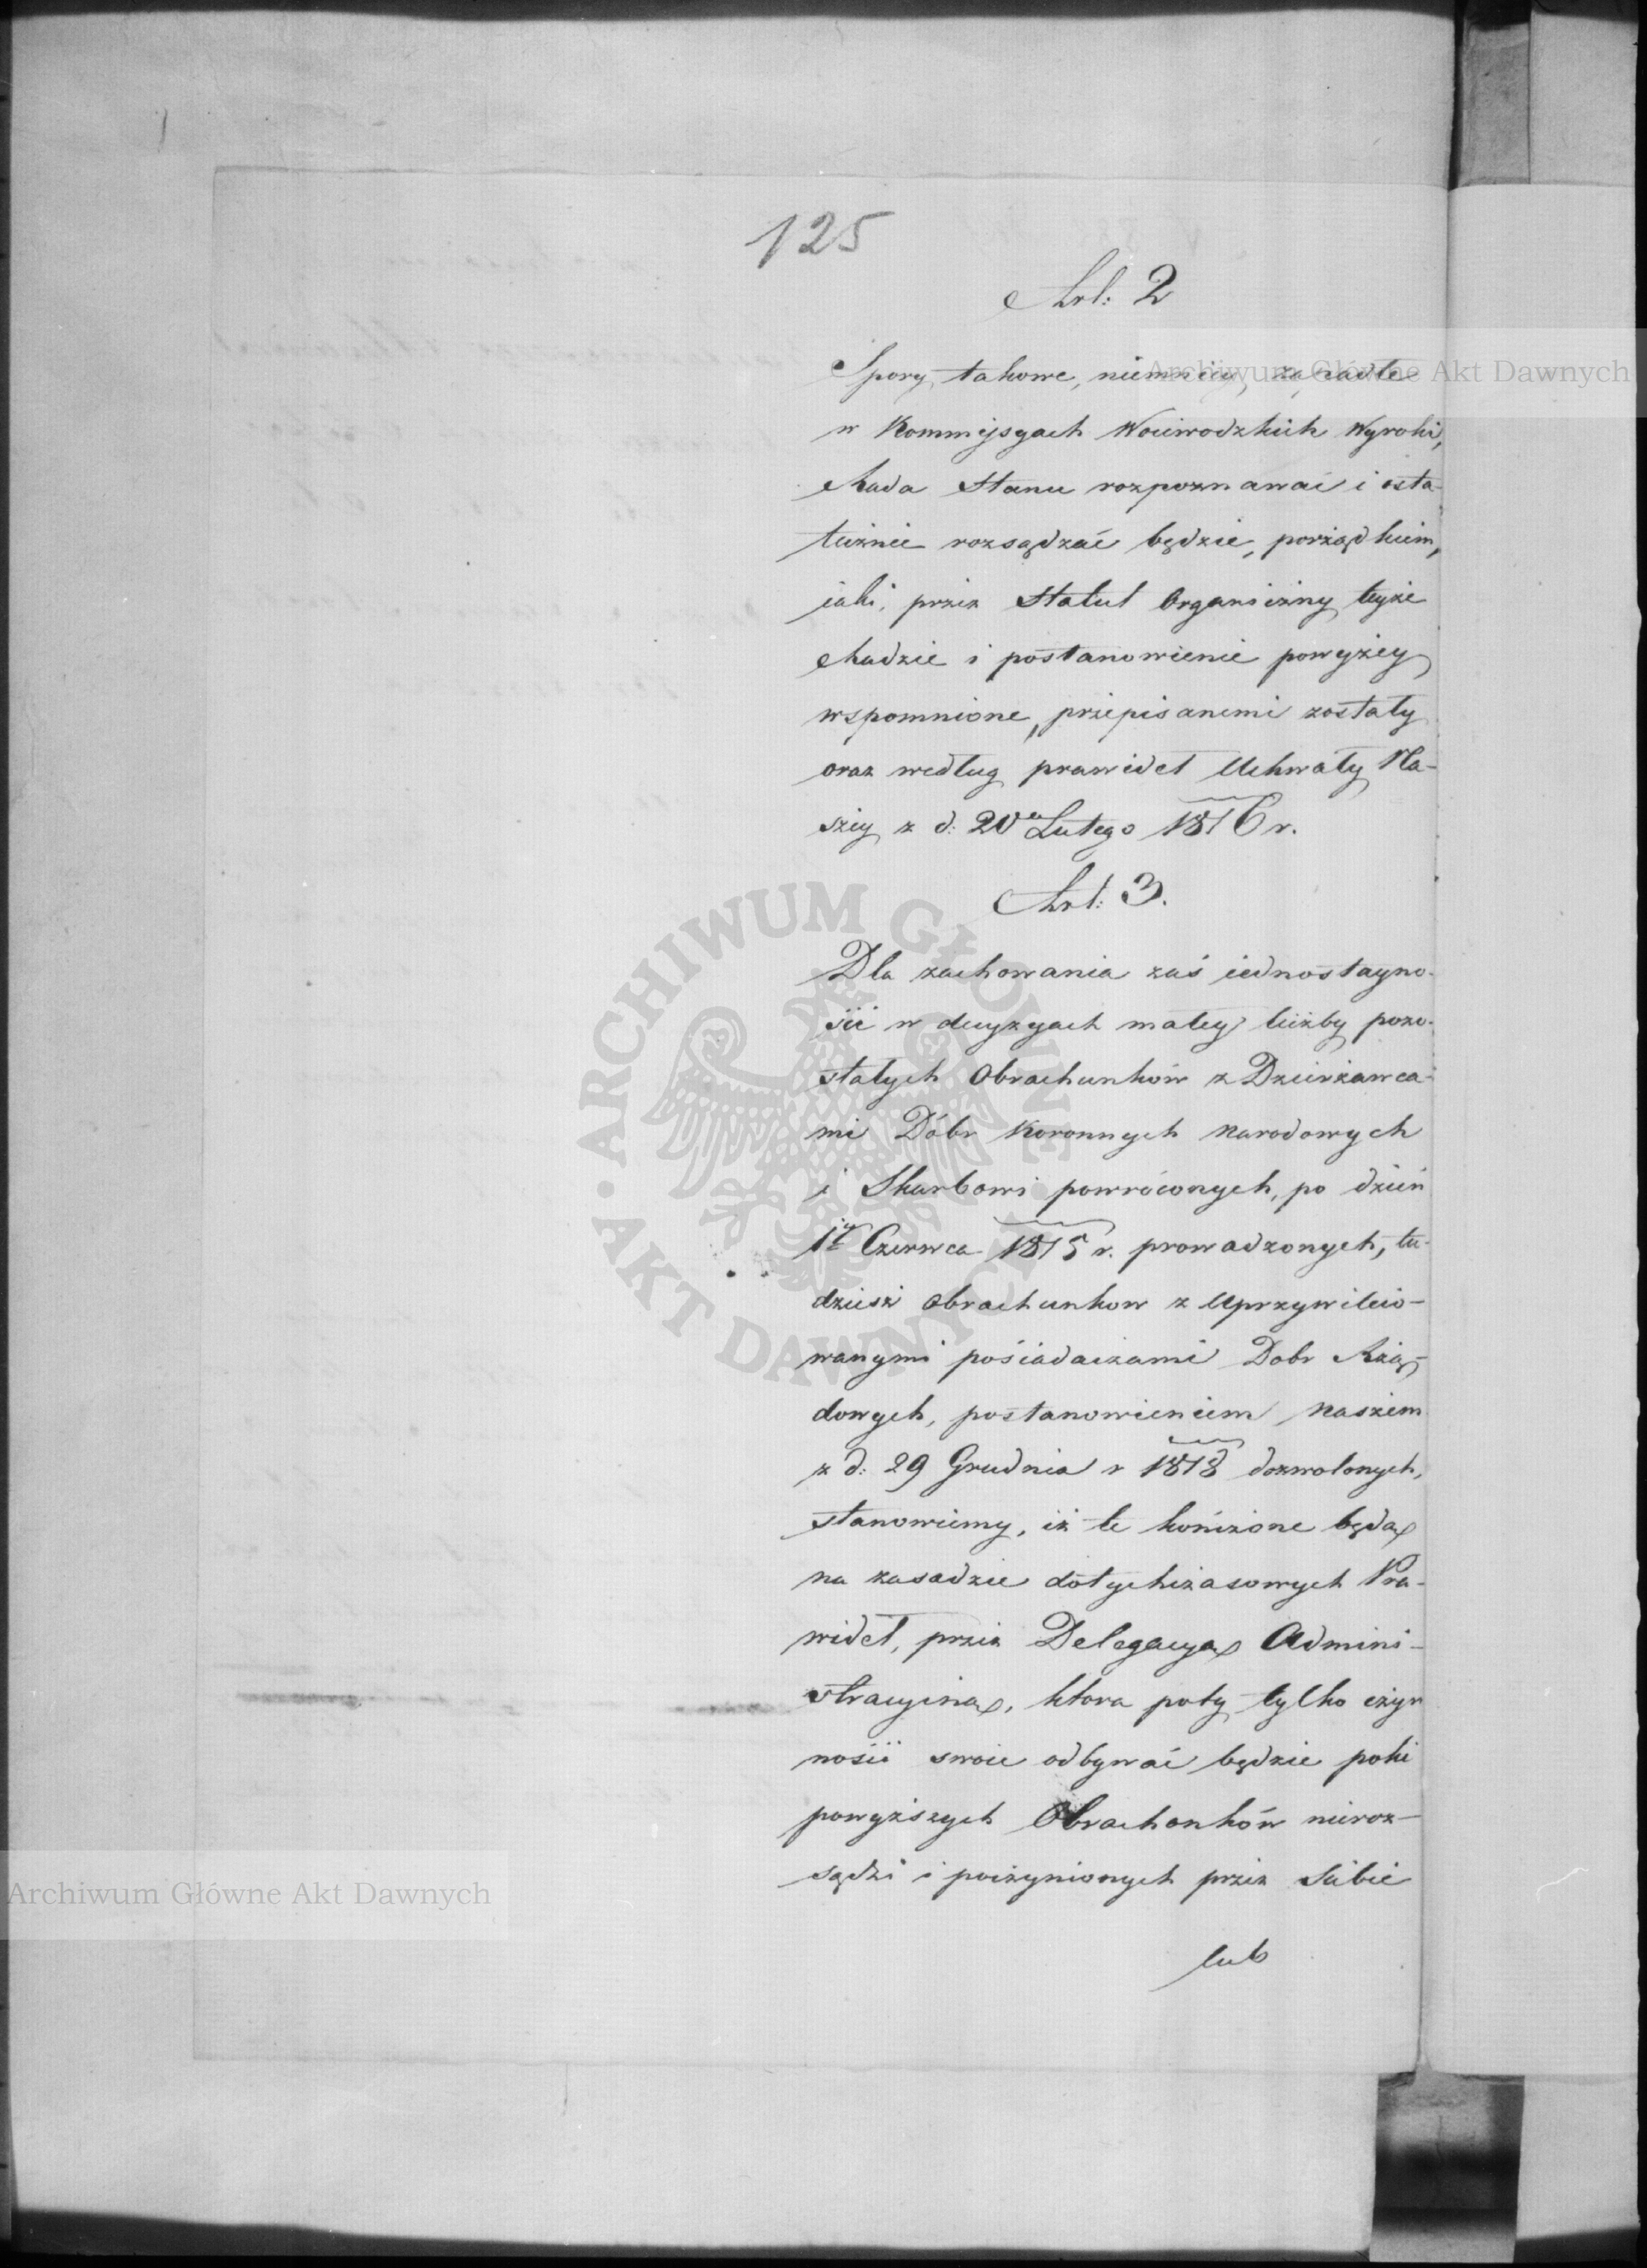 125
Art: 2
Spory takowe, niemniey, zapadłe
w Kommissyach Woiewodzkich Wyroki,
Rada Stanu rozpoznawać i osta-
tecznie rozsądzać będzie, porządkiem,
iaki, przez Statut Organiczny teyże
Radzie i postanowienie powyżey
wspomnione, przepisanemi zostały
oraz według prawideł Uchwały Na-
szey z d: 20go Lutego 1816 r.
Art: 3.
Dla zachowania zaś iednostayno-
ści w decyzyach małey liczby pozo-
stałych Obrachunków z Dzierżawca-
mi Dóbr Koronnych Narodowych
i Skarbowi powróconych, po dzień
1go Czerwca 1815 r. prowadzonych, tu-
dzież obrachunkow z Uprzywileio-
wanymi posiadaczami Dobr Rzą-
dowych, postanowieniem Naszem
z d: 29 Grudnia r 1818 dozwolonych,
stanowiemy, iż te kończone będą
na zasadzie dotychczasowych Pra-
wideł, przez Delegacyą Admini-
stracyiną, ktora poty tylko czyn
ności swoie odbywać będzie poki
powyższych Obrachonków nieroz-
sądzi i poczynionych przez Siebie
lub
Archiwum Główne Akt Dawnych
ARCHIWUM GŁÓWNE
AKT DAWNYCH
Archiwum Główne Akt Dawnych